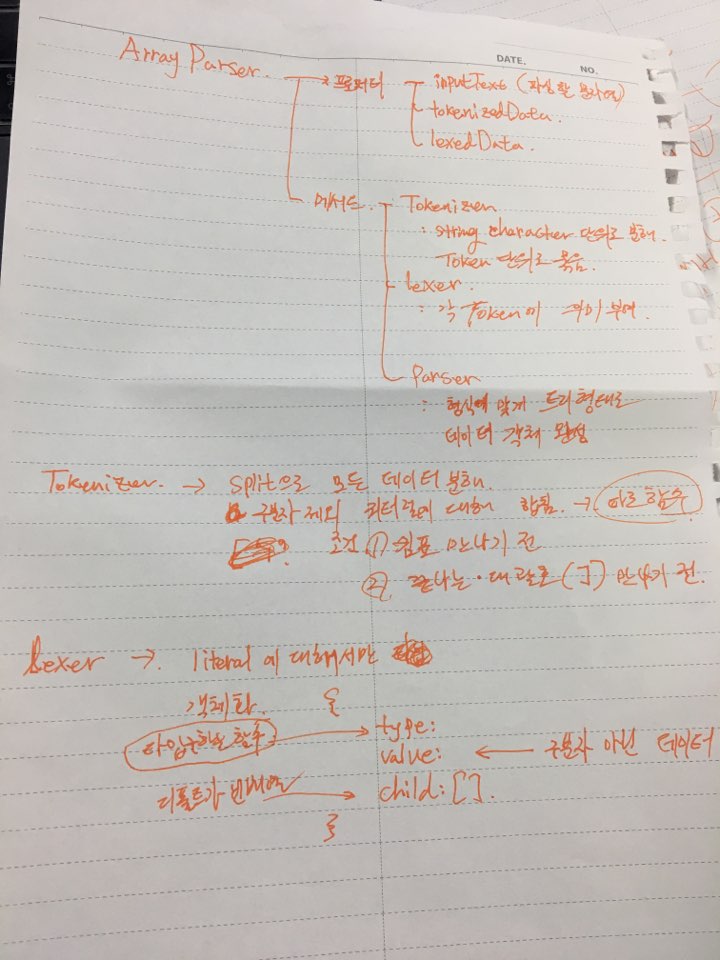 DATE.
NO.
Array Parser.
프로퍼티
inputText (파싱할 문자열)
tokenizedData.
lexedData.
메서드
Tokenizer
: string character 단위로 분해.
Token 단위로 묶음.
lexer.
: 각 Token에 의미 부여.
Parser
: 형식에 맞게 트리형태로
데이터 객체 완성
Tokenizer. → split으로 모든 데이터 분해.
구분자 제외 리터럴에 대해 합침. → 따로 함수
조건 ① 쉼표 만나기 전
② 끝나는 대괄호 ( ] ) 만나기 전.
Lexer → literal에 대해서만
객체화 {
타입구하는 함수 → type:
value: ← 구분자 아닌 데이터
디폴트가 빈배열 → child: [ ].
}